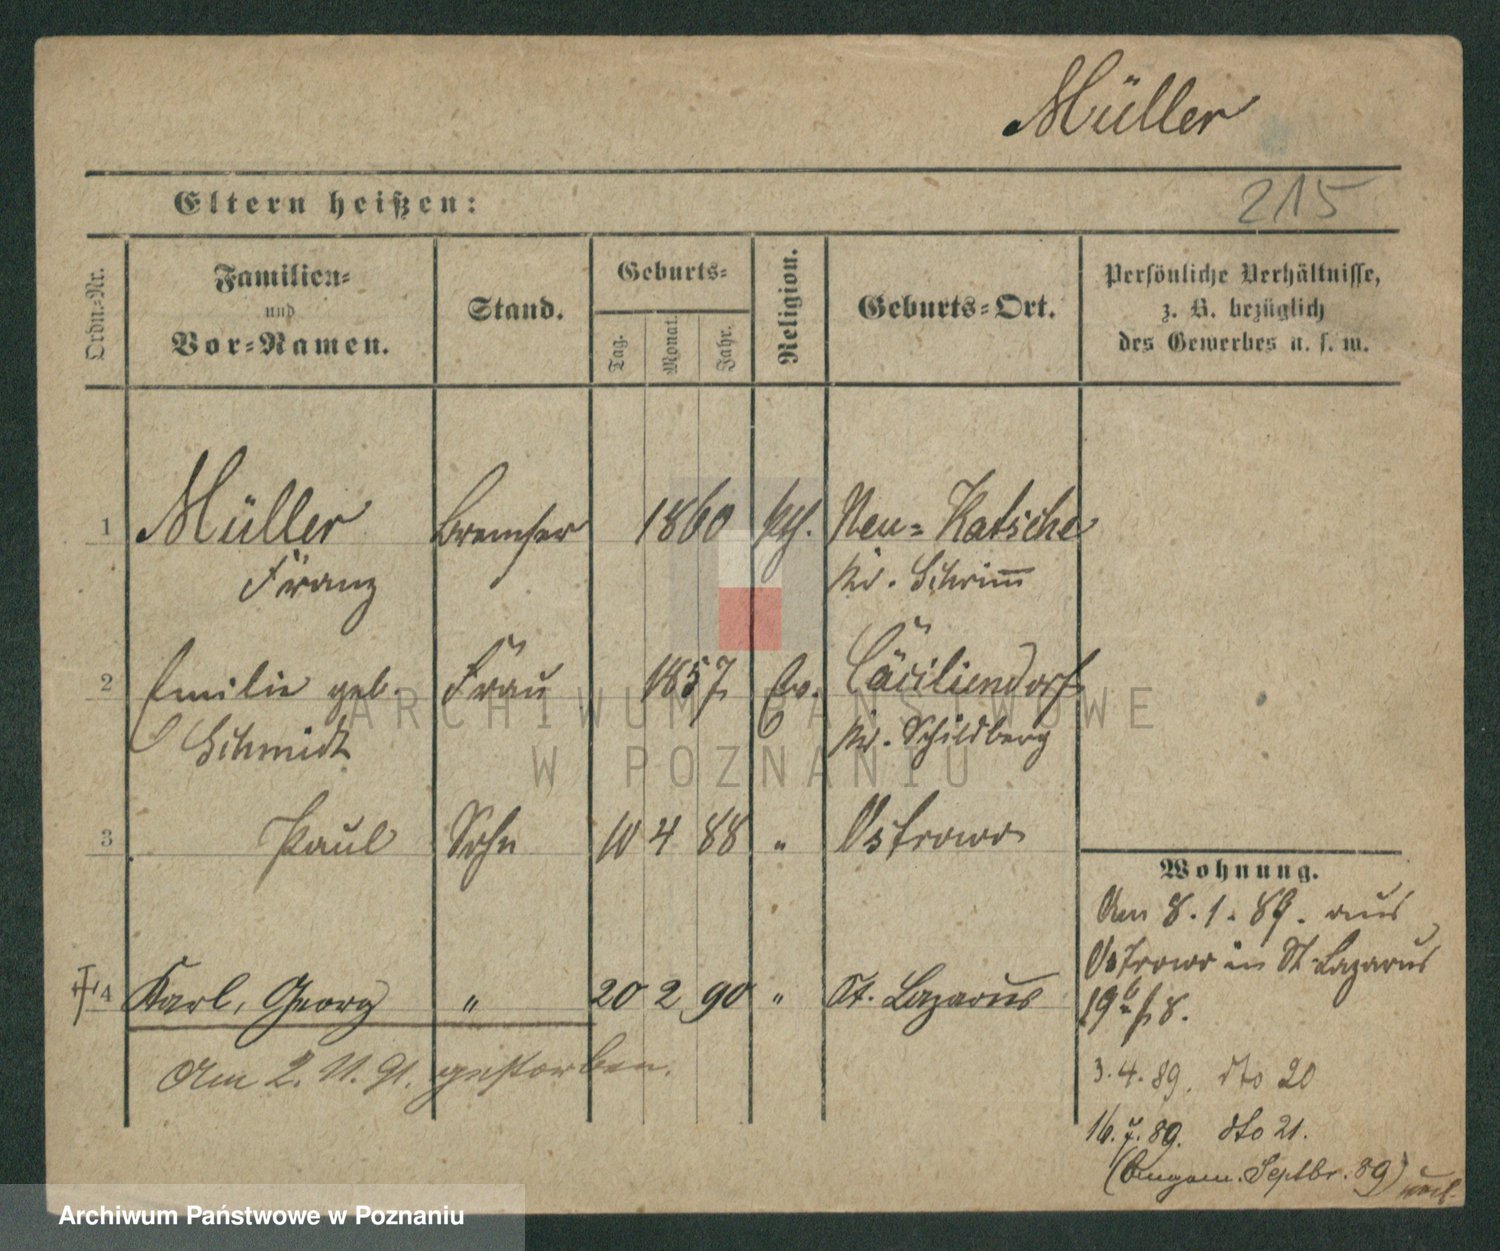 Müller
215
Eltern heißen:
Ordn.-Nr.
Familien-
und
Vor-Namen.
Stand.
Geburts-
Tag.
Monat.
Jahr.
Religion.
Geburts-Ort.
Persönliche Verhältnisse,
z. B. bezüglich
des Gewerbes u. s. w.
1 Müller Bremser 1860 kth. Neu-Katsche
Franz Kr. Schrim̅
2 Emilie geb. Frau 1857 Ev. Cäciliendorf
Schmidt Kr. Schildberg
3 Paul Sohn 10 4 88 " Ostrowo
Wohnung.
Am 8.1.89. aus
Ostrowo in St. Lazarus
4 Karl, Georg " 20 2 90 " St. Lazarus
Am 2.11.91. gestorben.
3.4.89. dto 20
16.7.89. dto 21.
Septbr. 89)
ARCHIWUM PAŃSTWOWE
W POZNANIU
Archiwum Państwowe w Poznaniu